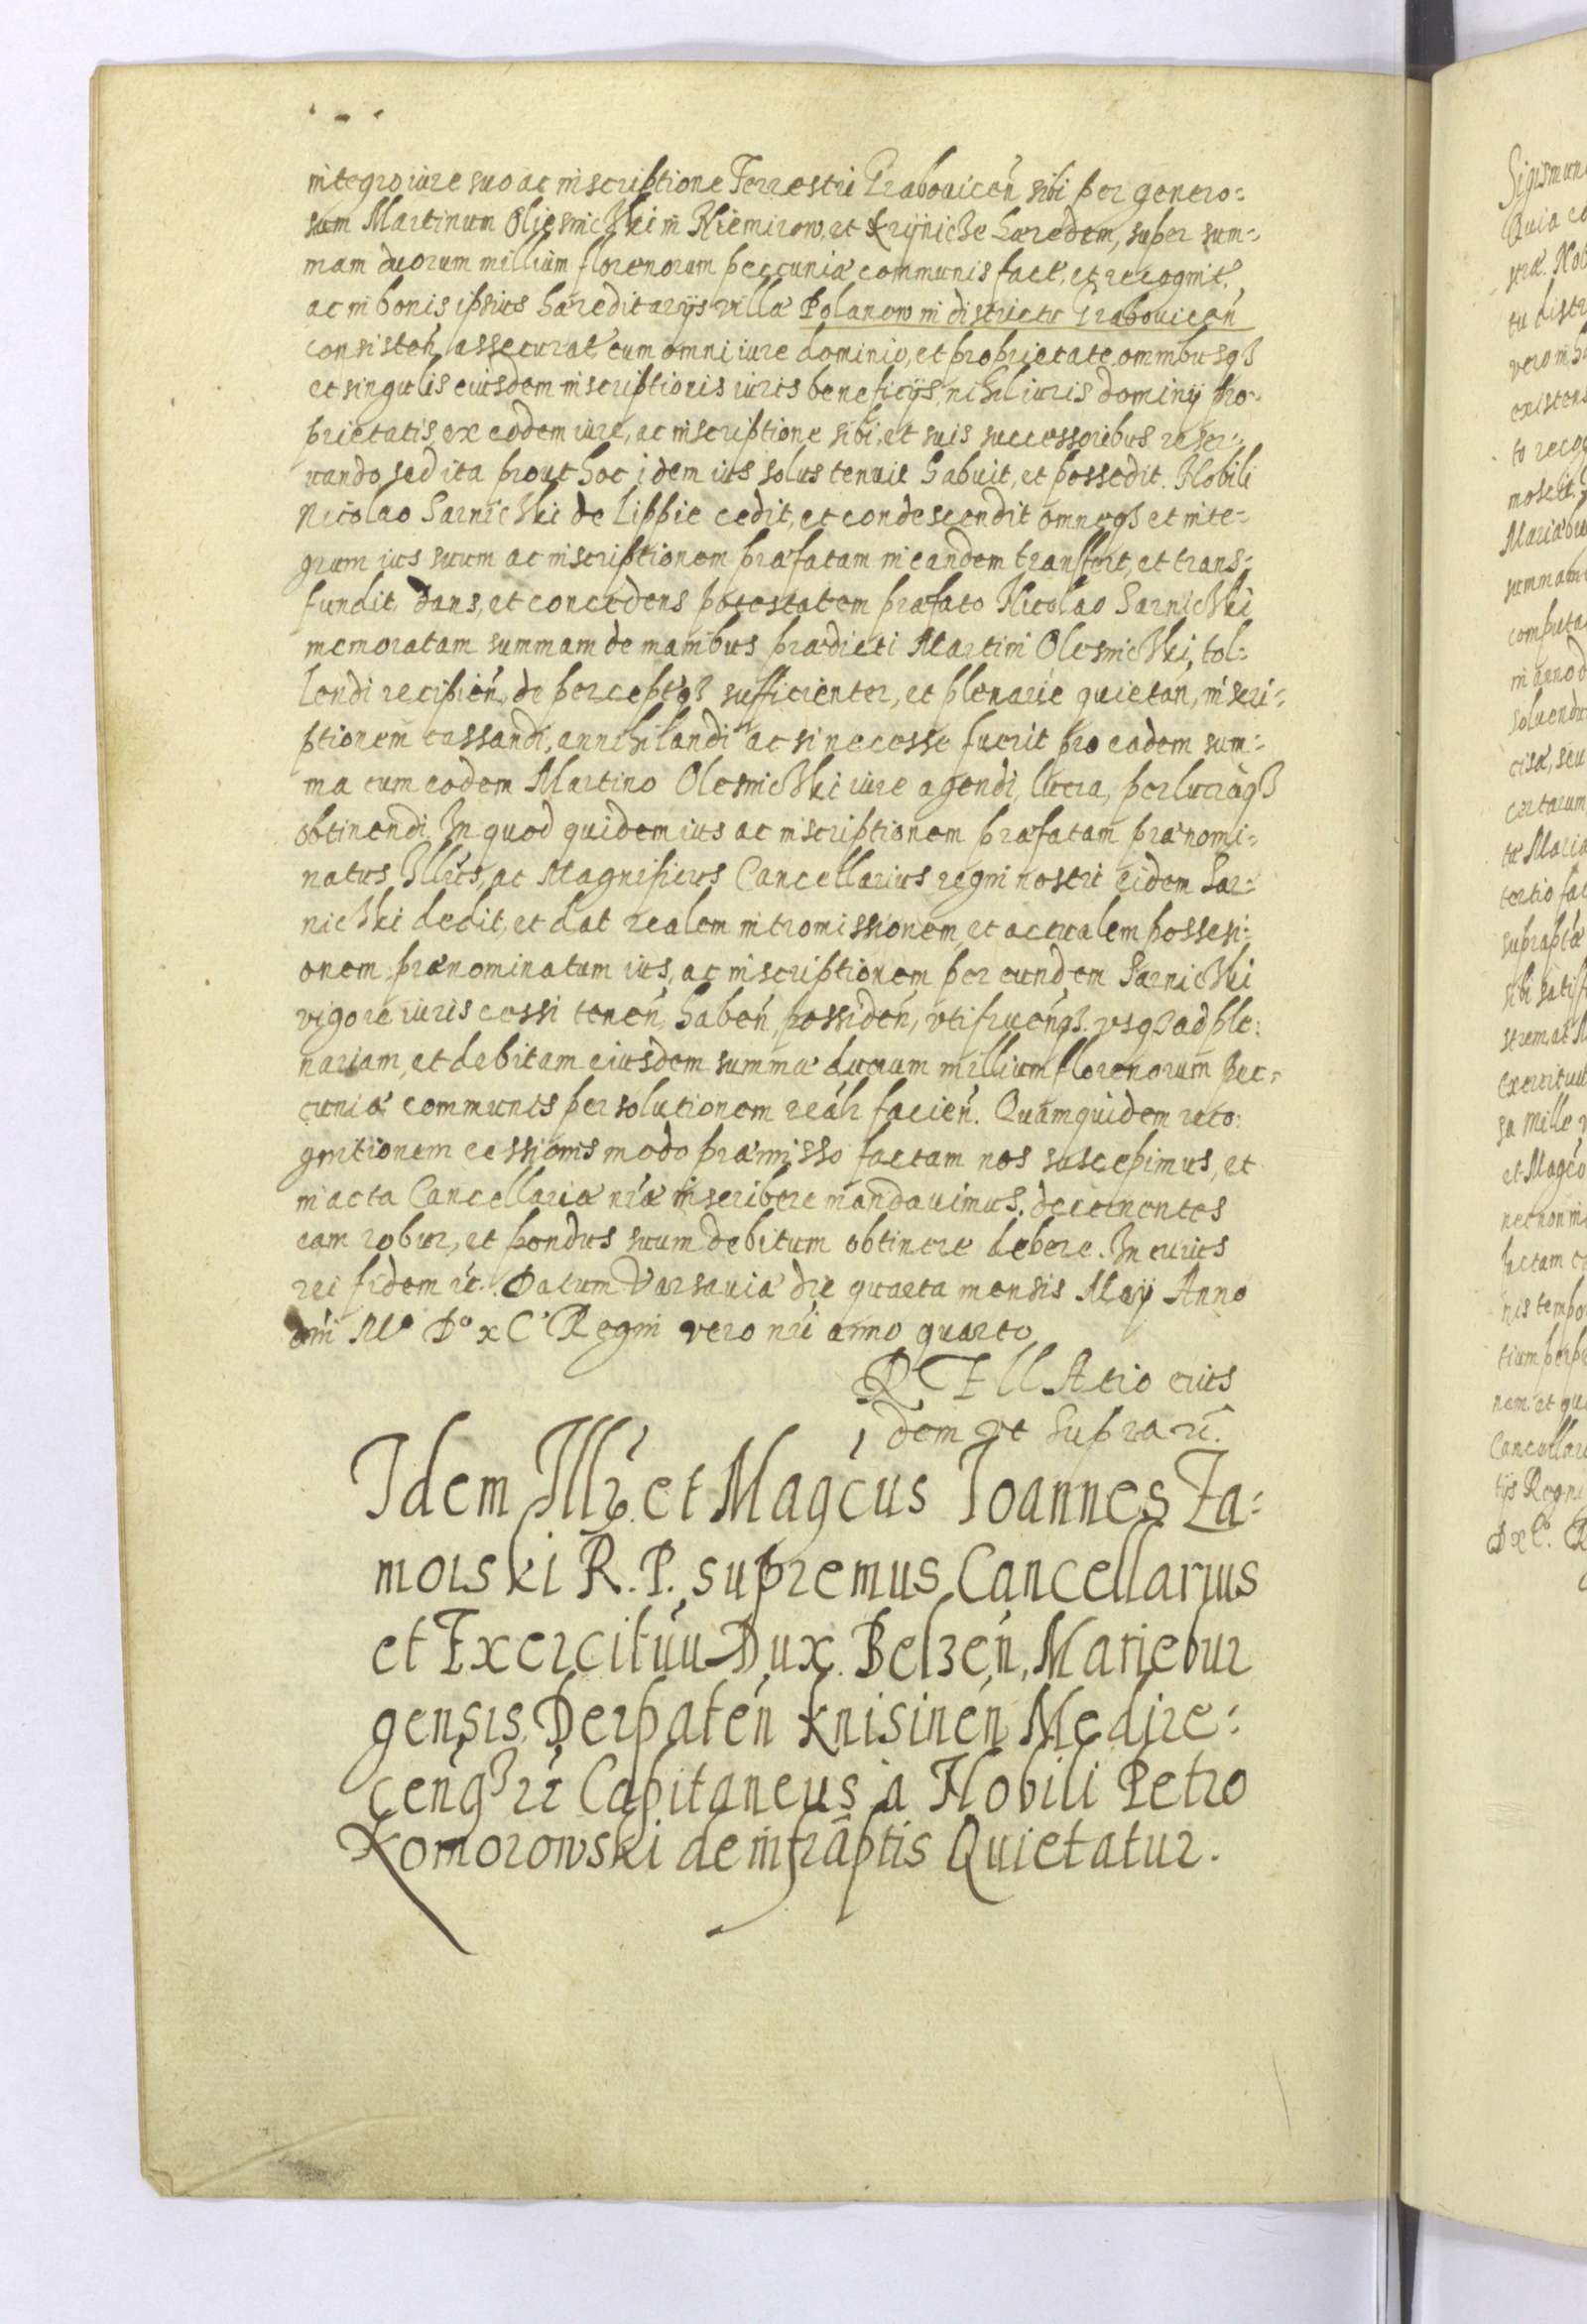 integro iure suo ac inscriptione Terrestri Grabouicen̄ sibi per genero:
sum Martinum Oliesniczki in Niemirow, et Krijnicze hæredem, super sum:
mam duorum millium florenorum peccuniæ communis fact. et recognit.
ac in bonis ipsius hæreditarijs villæ Polanow in districtu Grabouicen̄
consisteń assecurat. cum omni iure dominio, et proprietate omnibusq3
et singulis eiusdem inscriptionis iuris beneficijs, nihil iuris dominij pro:
prietatis, ex eodem iure, ac inscriptione sibi, et suis successoribus reser:
uando, sed ita prout hoc idem ius solus tenuit habuit, et possedit. Nobili
Nicolao Sarniczki de Lippie cedit, et condescendit omneq3 et inte:
grum ius suum ac inscriptionem præfatam in eandem transfert, et trans:
fundit, dans, et concedens potestatem præfato Nicolao Sarniczki
memoratam summam de manibus prædicti Martini Olesniczki, tol:
lendi recipień, de perceptisq3 sufficienter, et plenarie quietań, inscri:
ptionem cassandi, annihilandi ac si necesse fuerit pro eadem sum:
ma cum eodem Martino Olesniczki iure agendi, lucra, perlucraq3
obtinendi, In quod quidem ius ac inscriptionem præfatam prænomi:
natus Illr̄is, ac Magnificus Cancellarius regni nostri eidem Sar:
niczki dedit, et dat realem intromissionem, et actualem possessi:
onem prænominatum ius, ac inscriptionem per eundem Sarniczki
vigore iuris cessi teneń, habeń, possideń, vtifrueńq3. vsq3 ad ple:
nariam, et debitam eiusdem summæ duorum millium florenorum pec:
cuniæ communis persolutionem reālr facień. Quamquidem reco:
gnitionem cessionis modo præmisso factam nos suscepimus, et
in acta Cancellariæ nr̄æ inscribere mandauimus. decernentes
eam robur, et pondus suum debitum obtinere debere. In cuius
rei fidem r̄c. Datum Varsauiæ die quarta mensis Maij Anno
dn̄i Mo Do xCo Regni vero nr̄i anno quarto
R E ll Atio eius
dem vt supra r̄c.
Idem Illr̄ et Mag̃cus Ioannes Za:
moiski R. P. supremus Cancellarius
et Exercitūu Dux. Belzeń, Mariebur
gensis, Derpateń Knisineń Medire:
ceńq3 r̄c Capitaneus a Nobili Petro
Komorowski de infrāptis Quietatur.